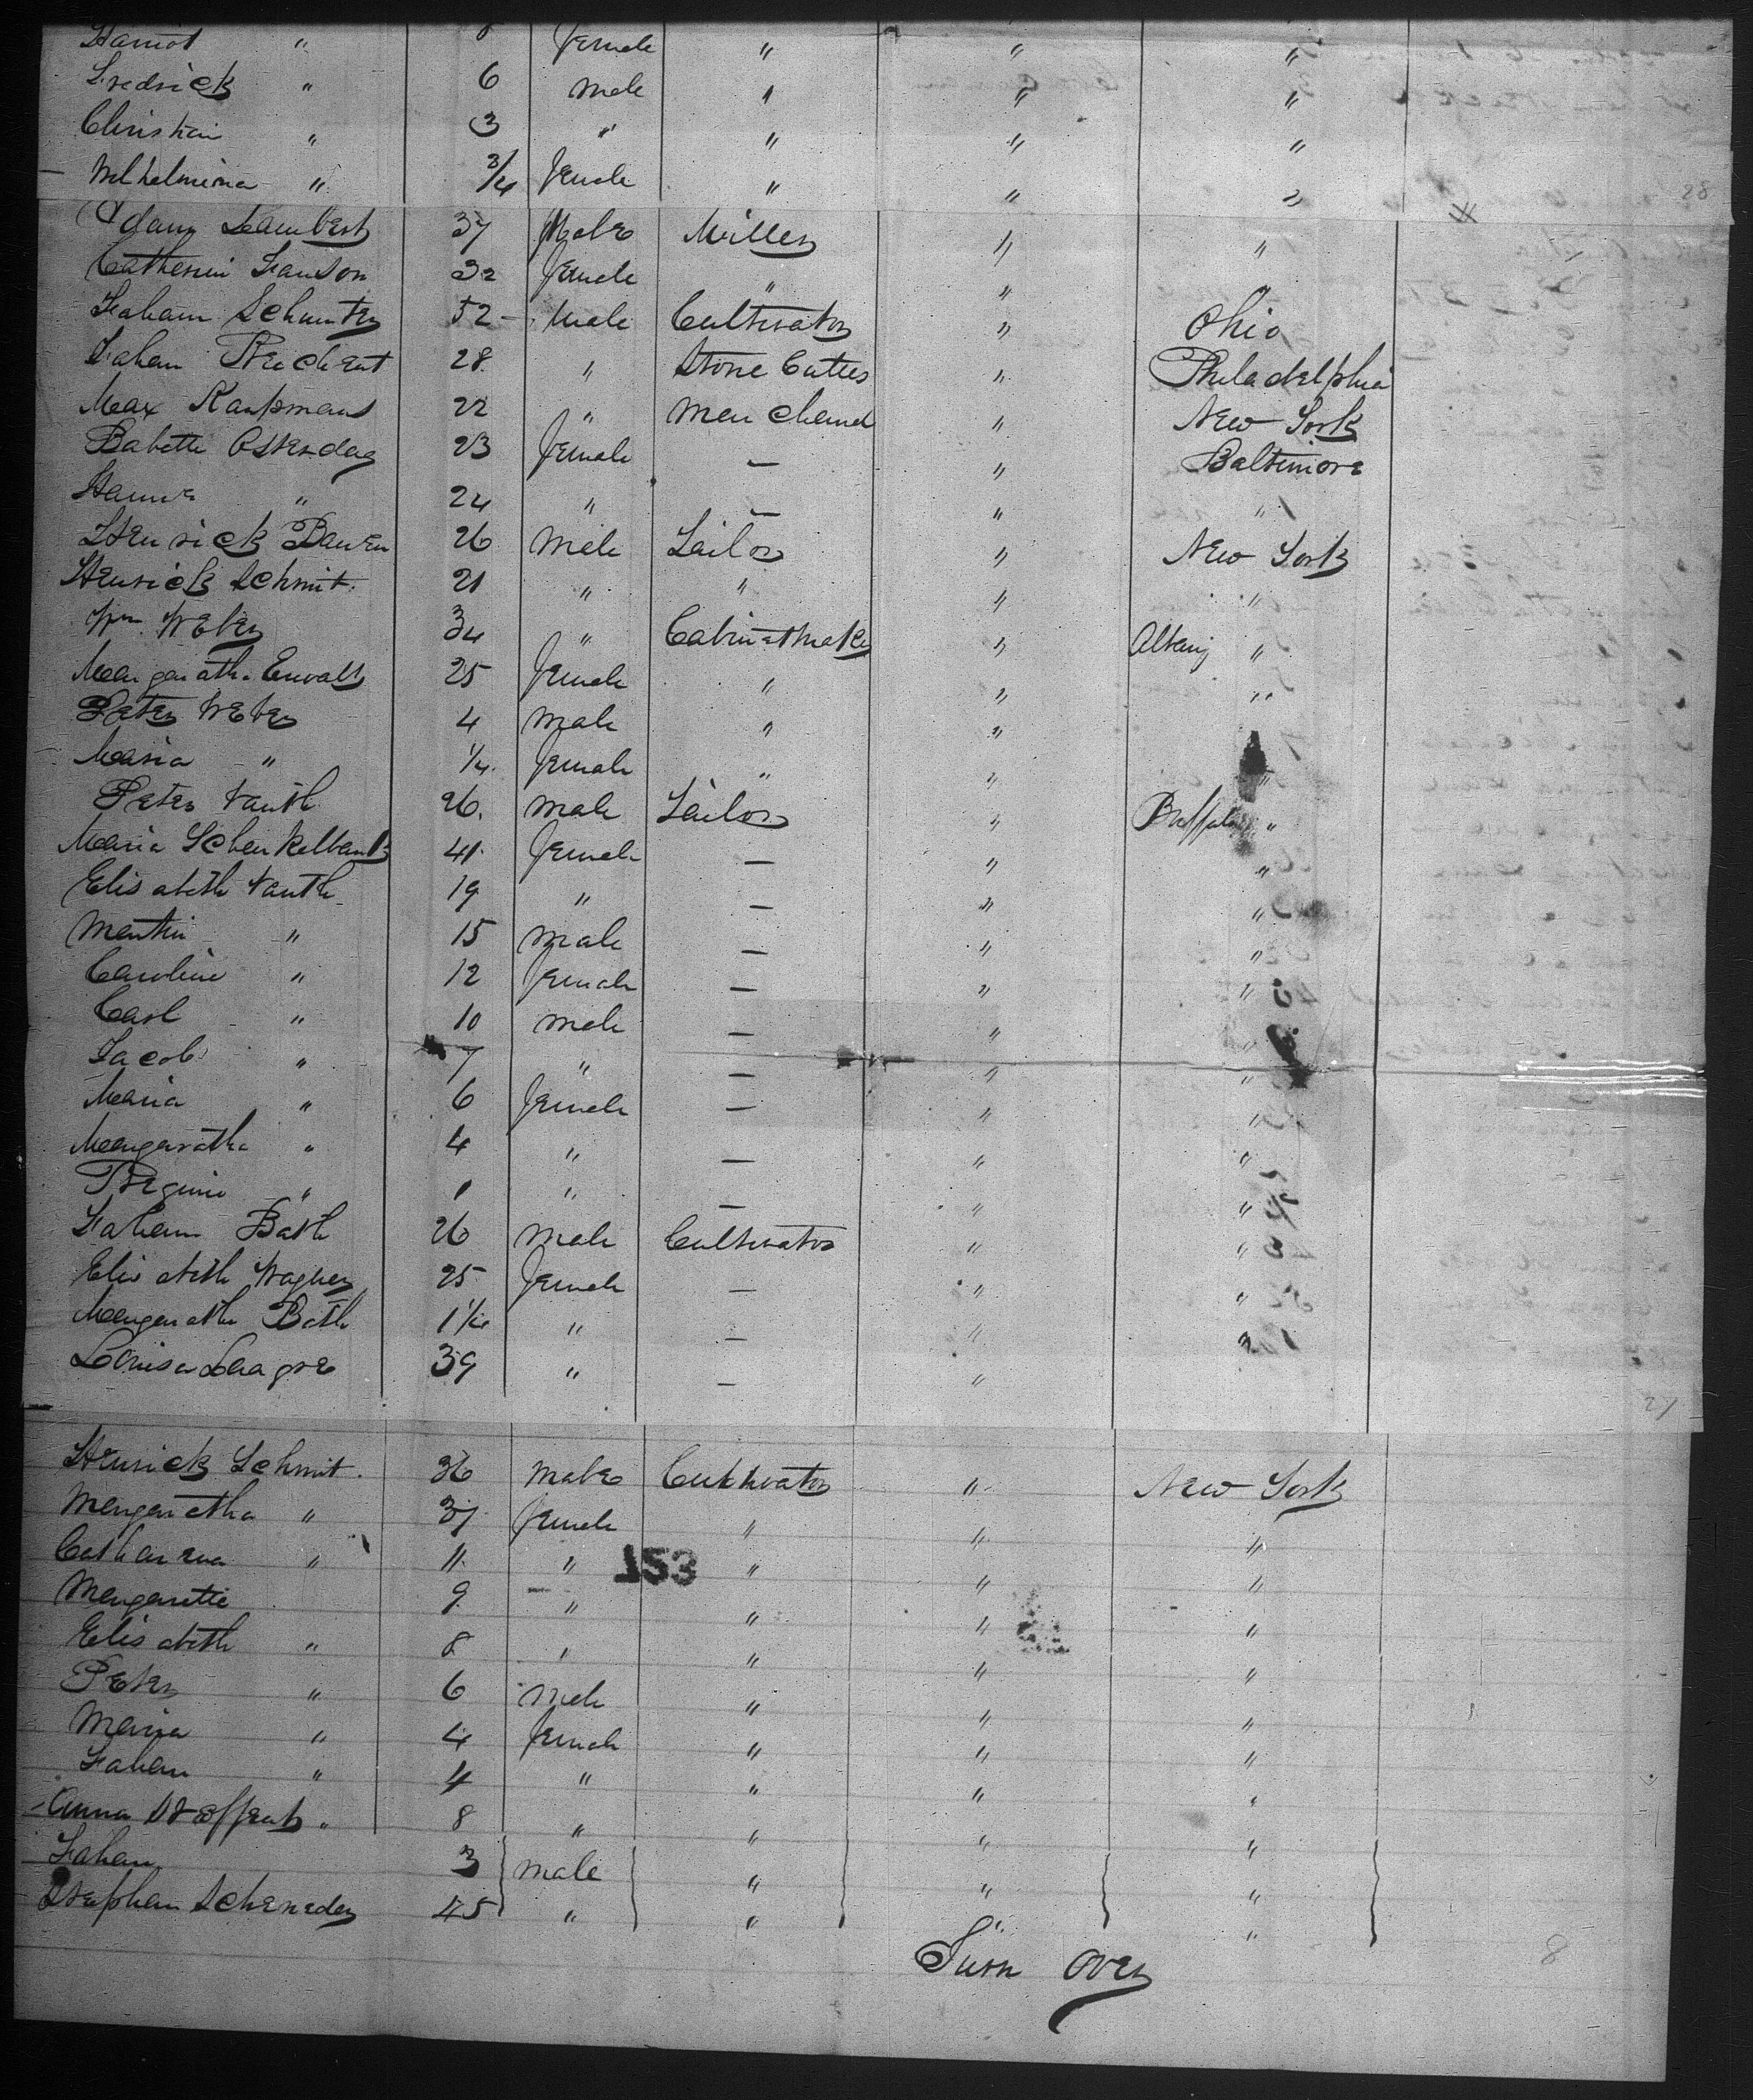 Harriot " 8 female " " "
Fredrick " 6 male " " "
Christian " 3 " " " "
Wilhelmina " 3/4 female " " "
28
Adam Lambert 37 Male Miller " "
Catherin Janson 32 female " " "
Johann Schuster 52 male Cultivator " Ohio
Johan Reichert 28 " Stone Cutter " Philadelphia
Max Kaufmann 22 " Merchand " New York
Babette Ostendag 23 female — " Baltimore
Hanna " 24 " — " "
Henrick Bauer 26 male Tailor " New York
Henrick Schmit 21 " " " "
Wm Weber 34 " Cabinetmaker " Albany "
Margaratha Ewalt 25 female " " "
Peter Weber 4 male " " "
Maria " 1/4 female " " "
Peter Vauth 26 male Tailor " Buffalo "
Maria Schenkelbank 41 female — " "
Elisabeth Vauth 19 " — " "
Martin " 15 male — " "
Caroline " 12 female — " "
Carl " 10 male — " "
Jacob " 7 " — " "
Maria " 6 female — " "
Margaratha " 4 " — " "
Regina " 1 " — " "
Johann Bath 26 male Cultivator " "
Elisabeth Wagner 25 female — " "
Margaratha Bath 1 1/4 " — " "
Louisa 39 " — "
27
Henrick Schmit 36 male Cultivator " New York
Margaratha " 37 female " " "
Catharena " 11 " " " "
153
Margarette 9 " " " "
Elisabeth " 8 " " " "
Peter " 6 male " " "
Maria " 4 female " " "
Johan " 4 " " " "
Anna " 8 " " " "
Johan 3 male " " "
Stephan Scheneder 45 " " " "
Turn over
8